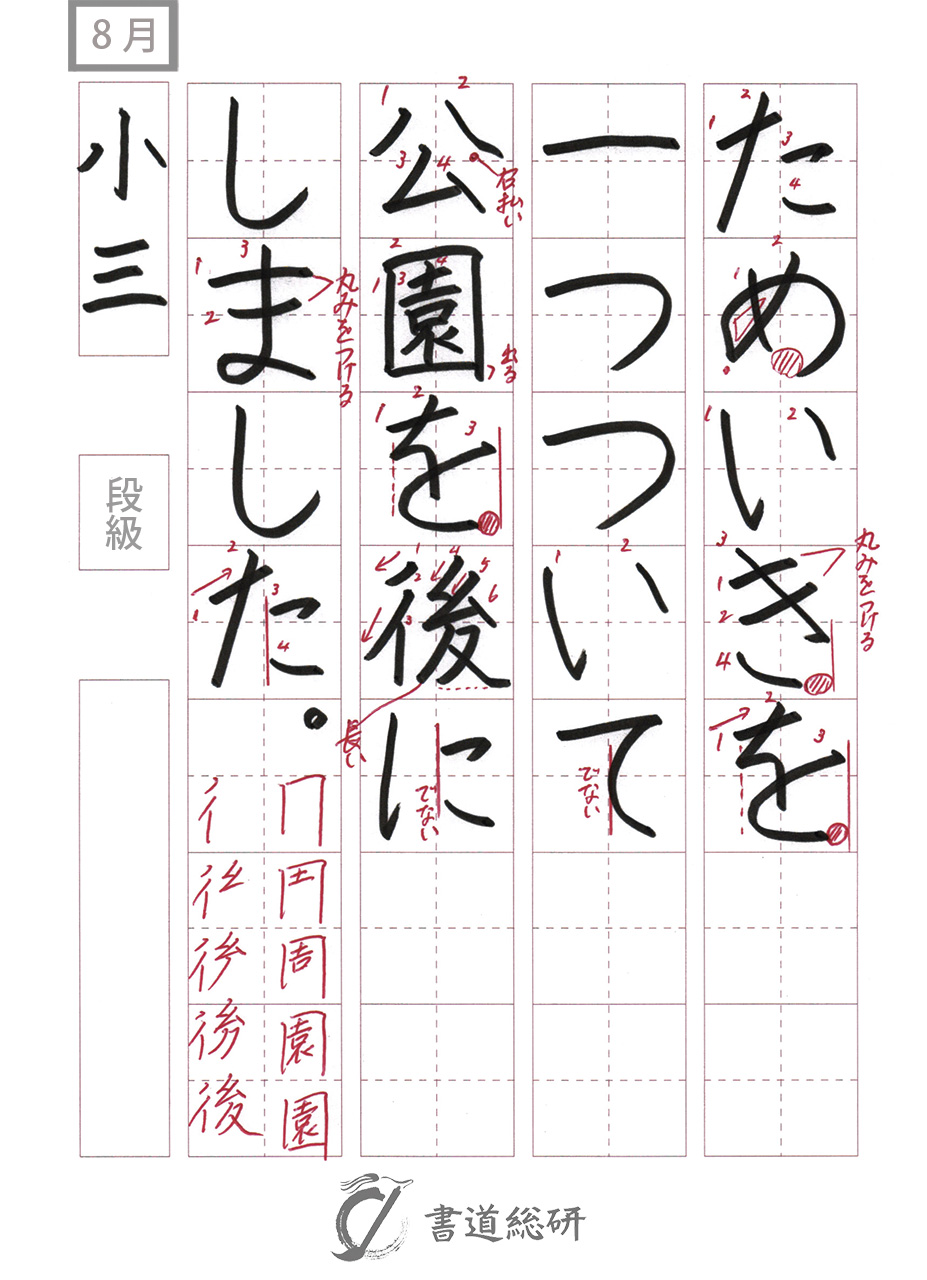 8月
ためいきを
一つついて
公園を後に
しました。
小三
段級
右払い
丸みをつける
出る
丸みをつける
長い
でない
でない
書道総研